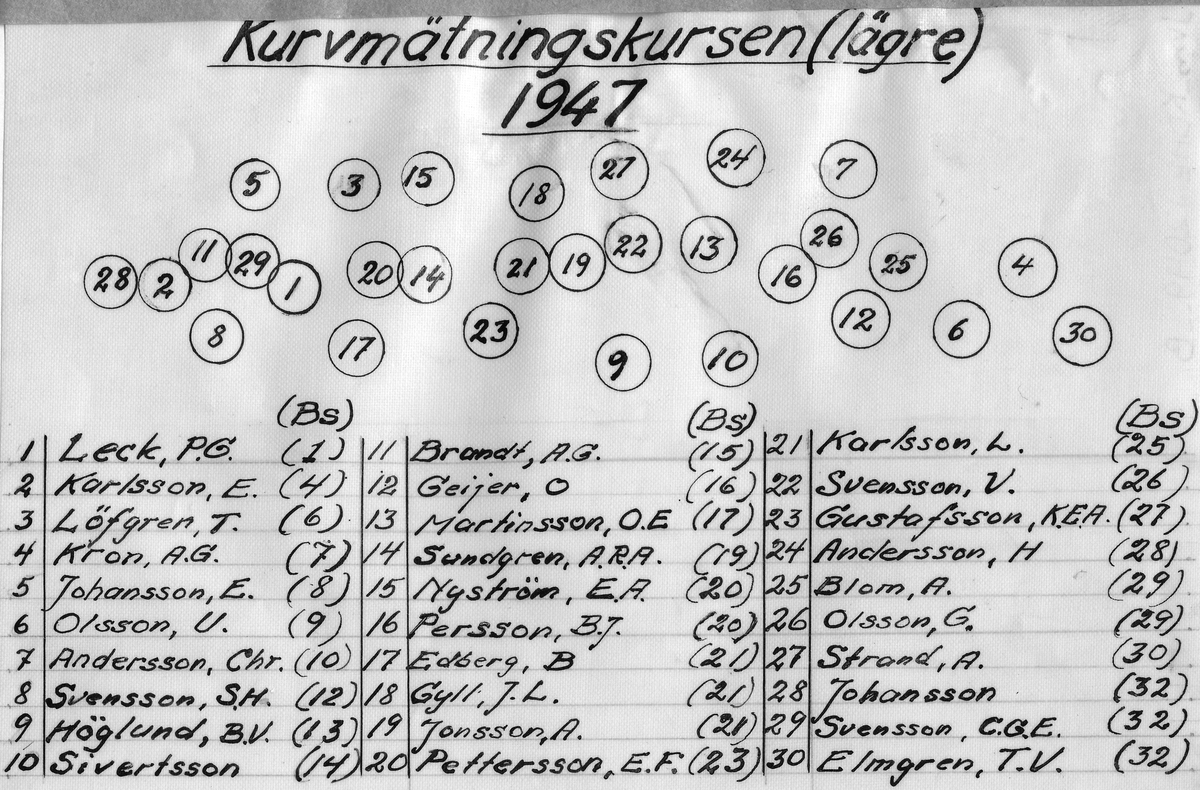 Kurvmätningskursen (lägre)
1947
5 3 15 18 27 24 7
28 2 11 29 1 20 14 21 19 22 13 16 26 25 4
8 17 23 9 10 12 6 30
(Bs) (Bs) (Bs)
1 Leck, P.G. (1) 11 Brandt, A.G. (15) 21 Karlsson, L. (25)
2 Karlsson, E. (4) 12 Geijer, O (16) 22 Svensson, V. (26)
3 Löfgren, T. (6) 13 Martinsson, O.E (17) 23 Gustafsson, K.E.A. (27)
4 Kron, A.G. (7) 14 Sundgren, A.R.A. (19) 24 Andersson, H (28)
5 Johansson, E. (8) 15 Nyström, E.A. (20) 25 Blom, A. (29)
6 Olsson, U. (9) 16 Persson, B.J. (20) 26 Olsson, G. (29)
7 Andersson, Chr. (10) 17 Edberg, B (21) 27 Strand, A. (30)
8 Svensson, S.H. (12) 18 Gyll, J.L. (21) 28 Johansson (32)
9 Höglund, B.V. (13) 19 Jonsson, A. (21) 29 Svensson, C.G.E. (32)
10 Sivertsson (14) 20 Pettersson, E.F. (23) 30 Elmgren, T.V. (32)